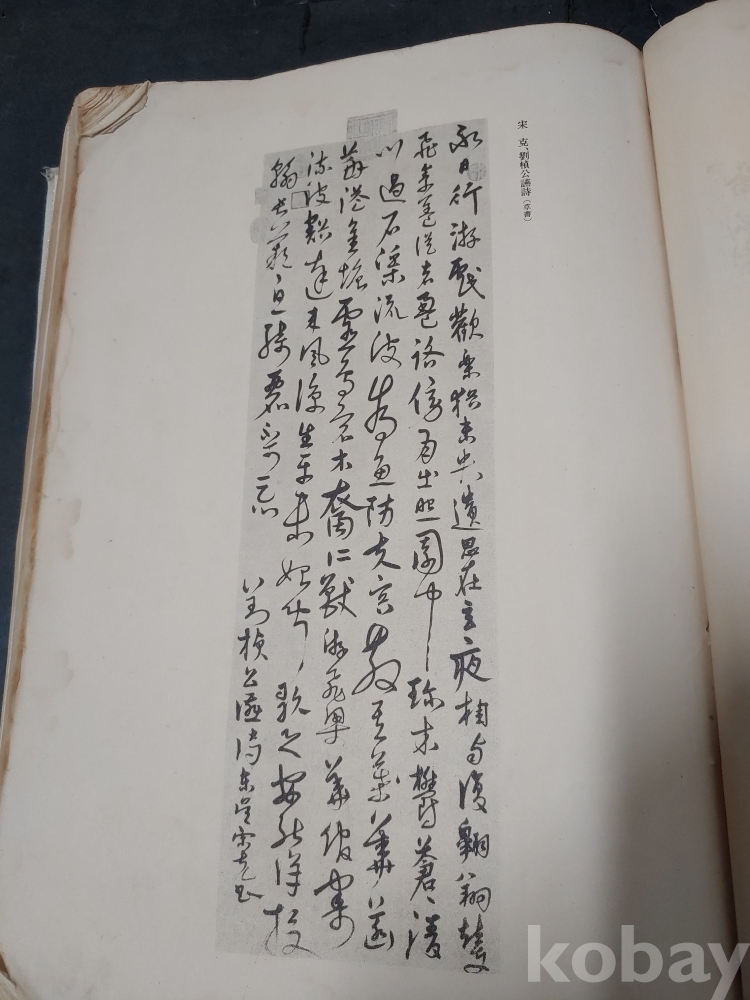 宋 克、劉楨公讌詩(草書)
永日行游戲歡樂猶未央遺思在玄夜相與復翱翔輦車
飛素蓋從者盈路傍月出照園中珍木鬱蒼蒼清
川過石渠流波為魚防夫容散其華菡
萏溢金塘靈鳥宿水裔仁獸游飛梁華館寄
流波豁達來風涼生平未始聞歌之安能詳投
翰長歎息綺麗不可忘
八劉楨公讌詩東吳宋克書
kobay